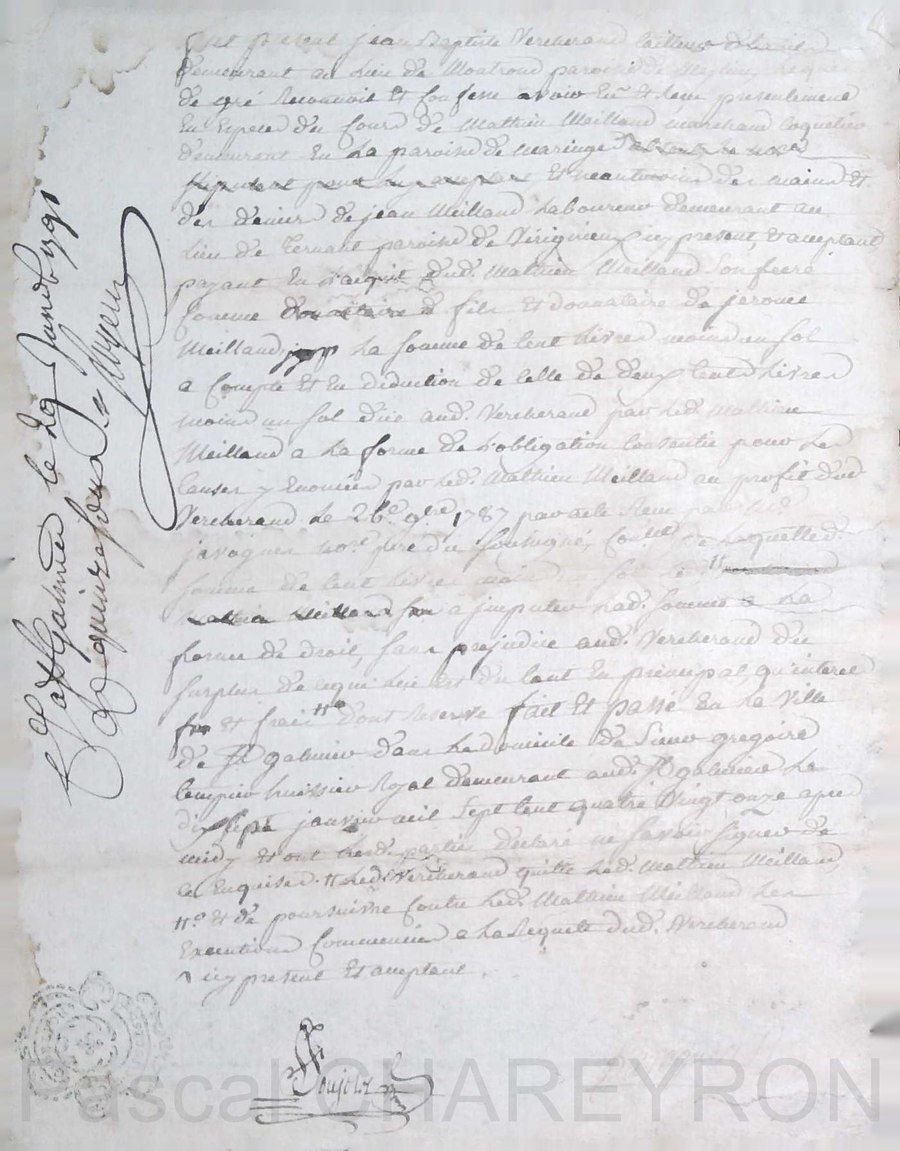 fut present jean Baptiste Vercherand tailleur d'habits
demeurant au lieu de Montrond paroisse de Meylieu lequel
de gré Reconnoit et Confesse avoir Eu et Reçu presentement
En Espece du Cours de Mathieu Meilland marchand Coquetier
demeurant En La paroisse de maringe
et neantmoins des mains et
des deniers de jean Meilland Laboureur demeurant au
lieu de Ternant paroisse de Virignieux icy present, et acceptant
payant En L'acquit dud. Mathieu Meilland son frere
Comme fils et donnataire de jerome
Meilland La Somme de Cent Livres moins un sol
a Compte et En deduction de Celle de deux Cents Livres
moins un sol due aud. Vercherand par Led. Mathieu
Meilland a La forme de L'obligation Consentie pour Les
Causes y Enoncées par Led. Mathieu Meilland au profit dud.
Vercherand Le 26e 9bre 1787 par acte Reçu
javagues pere du soussigné, de Laquelle d.
Somme de Cent Livres moins Led.
a jmputer Lad. Somme a La
forme de droit, Sans prejudice aud. Vercherand du
Surplus de Ce qui Lui est du tant En principal, qu'interet
et frais dont Reserve fait Et passé En La Ville
de St. Galmier dans Le domicile de Sieur gregoire
huissier Royal demeurant aud. St. galmier Le
dix sept janvier mil Sept Cent quatre Vingt onze apres
midy et ont Lesd. parties declaré ne Savoir Signer de
Ce Enquises. Led. Vercherand quitte Led. Mathieu Meilland
et de poursuivre Contre Led. Mathieu Meilland Les
Executions Commencées a La Requete dud. Vercherand
icy present et acceptant.
St. Galmier le 29 Janv. 1791
quinze sous
Pascal CHAREYRON